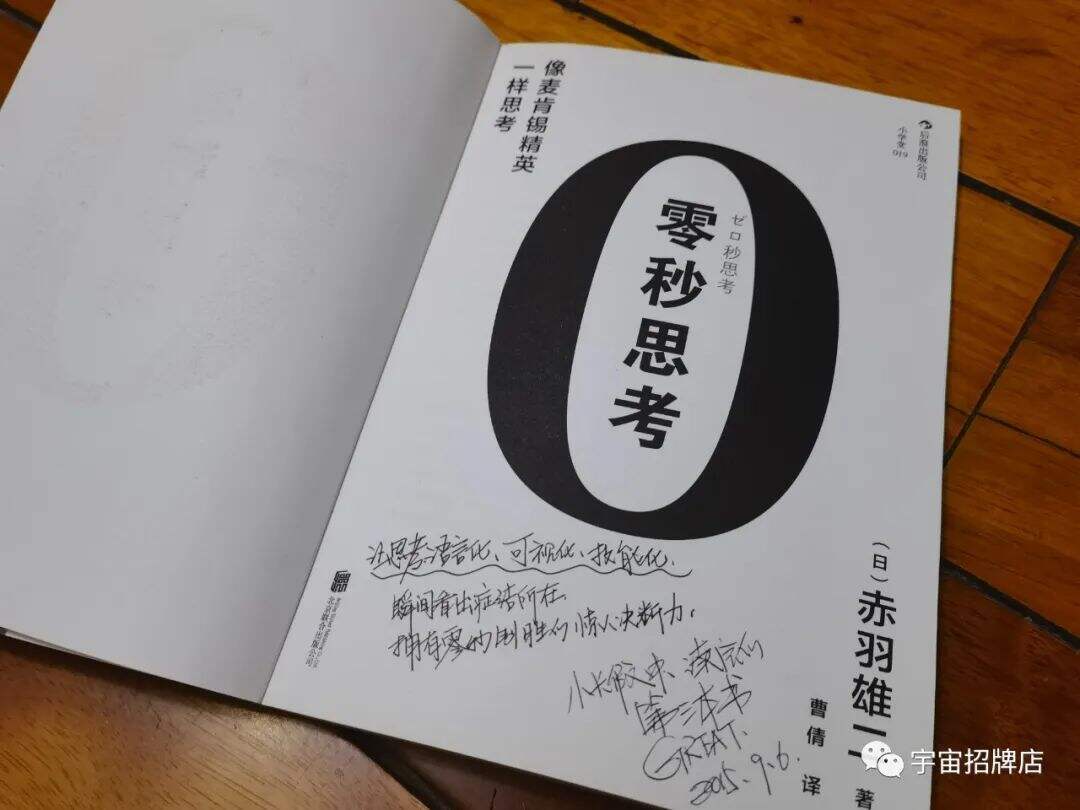 像麦肯锡精英
一样思考
后浪出版公司
小学堂 019
ゼロ秒思考
零秒思考
让思考语言化、可视化、技能化.
瞬间看出症结所在
拥有零秒制胜的惊人决断力.
小长假中、读完的
第三本书
GREAT.
2015.9.6.
北京联合出版公司
(日)赤羽雄二 著
曹倩 译
宇宙招牌店